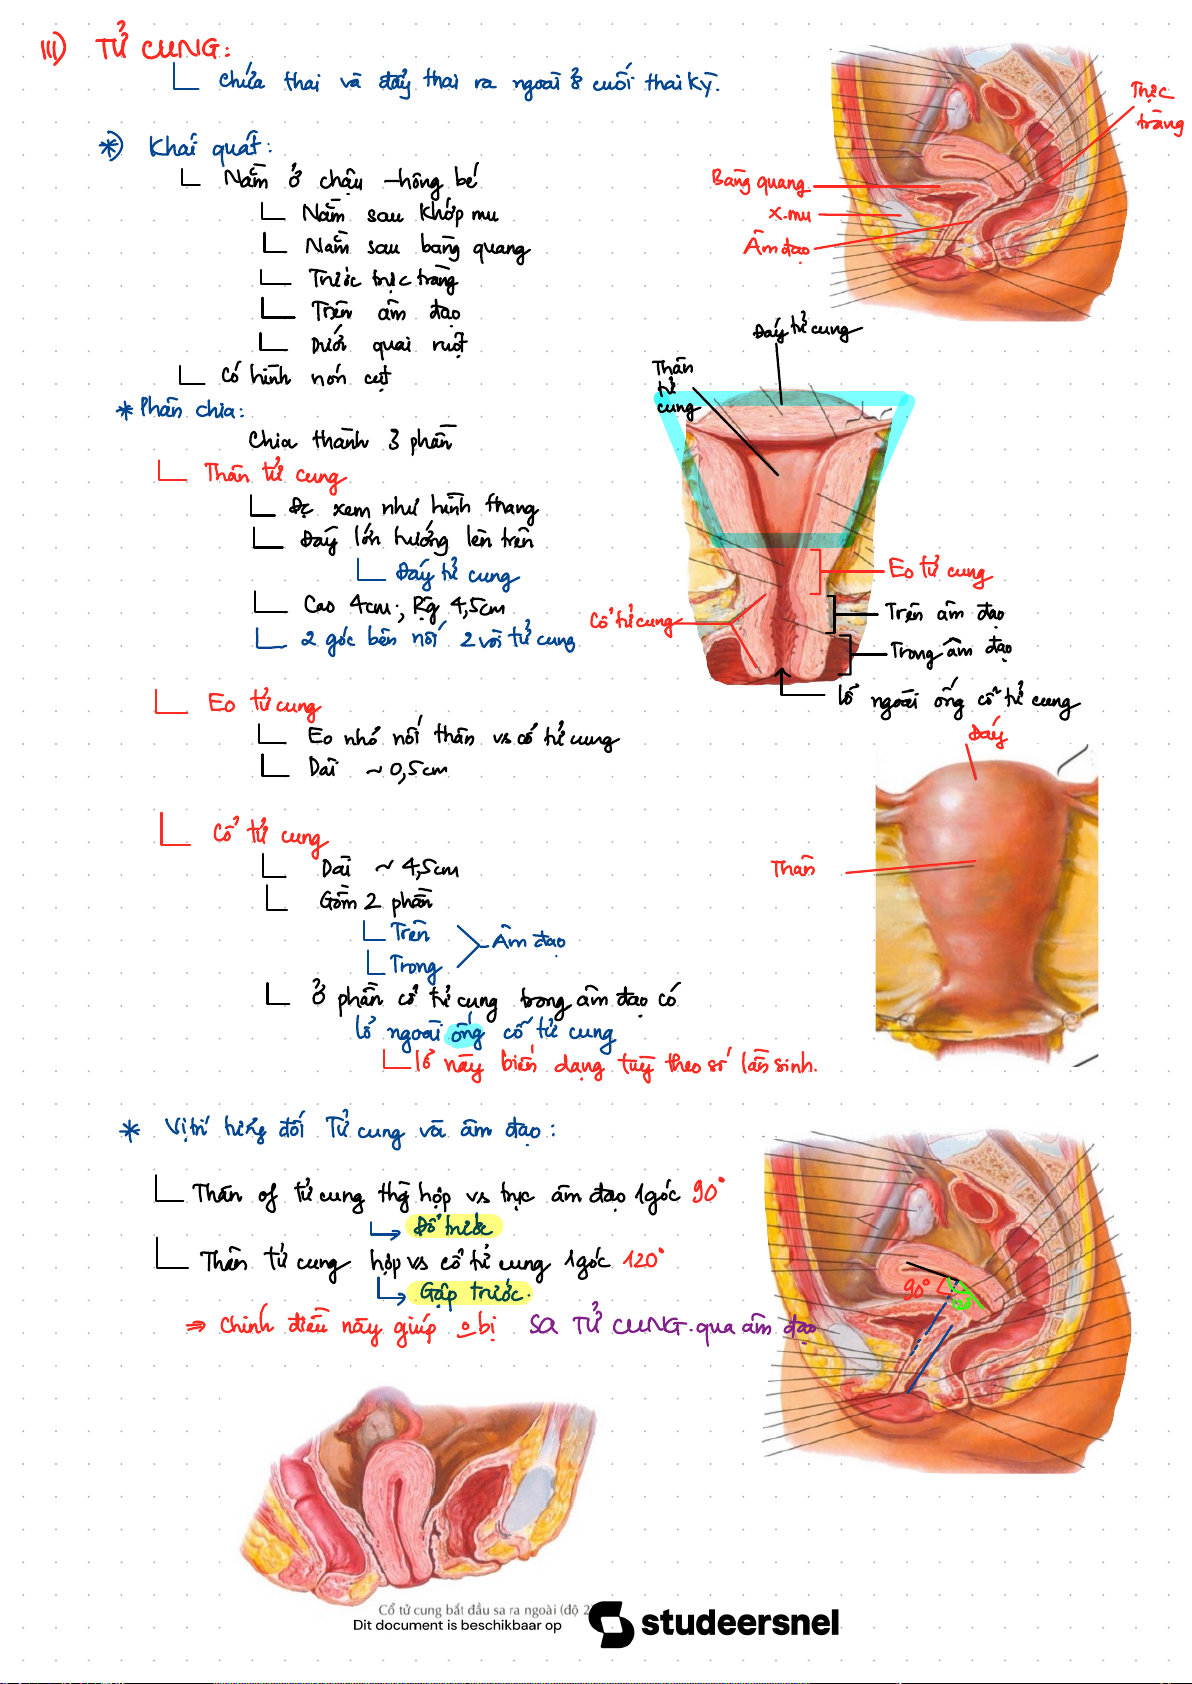 III) TỬ CUNG:
Chứa thai và đẩy thai ra ngoài ở cuối thai kỳ.
*) Khái quát:
Nằm ở chậu - hông bé
Nằm sau khớp mu
Nằm sau bàng quang
Trước trực tràng
Trên âm đạo
Dưới quai ruột
Có hình nón cụt
Trực tràng
Bàng quang
x.mu
Âm đạo
* Phân chia:
Chia thành 3 phần
Thân tử cung
Đc xem như hình thang
Đáy lớn hướng lên trên
Đáy tử cung
Cao 4cm; Rộng 4,5cm
2 góc bên nối 2 vòi tử cung
Đáy tử cung
Thân tử cung
Eo tử cung
Cổ tử cung
Trên âm đạo
Trong âm đạo
lỗ ngoài ống cổ tử cung
Eo tử cung
Eo nhỏ nối thân vs cổ tử cung
Dài ~ 0,5cm
Đáy
Thân
Cổ tử cung
Dài ~ 4,5cm
Gồm 2 phần
Trên
Trong
Âm đạo
Ở phần cổ tử cung trong âm đạo có
lỗ ngoài ống cổ tử cung
lỗ này biến dạng tuỳ theo số lần sinh.
* Vị trí tương đối Tử cung và âm đạo:
Thân of tử cung thg hợp vs trục âm đạo 1 góc 90°
Đổ trước
Thân tử cung hợp vs cổ tử cung 1 góc 120°
Gập trước.
⇒ Chính điều này giúp o bị SA TỬ CUNG qua âm đạo
90°
Cổ tử cung bắt đầu sa ra ngoài (độ 2)
Dit document is beschikbaar op studeersnel